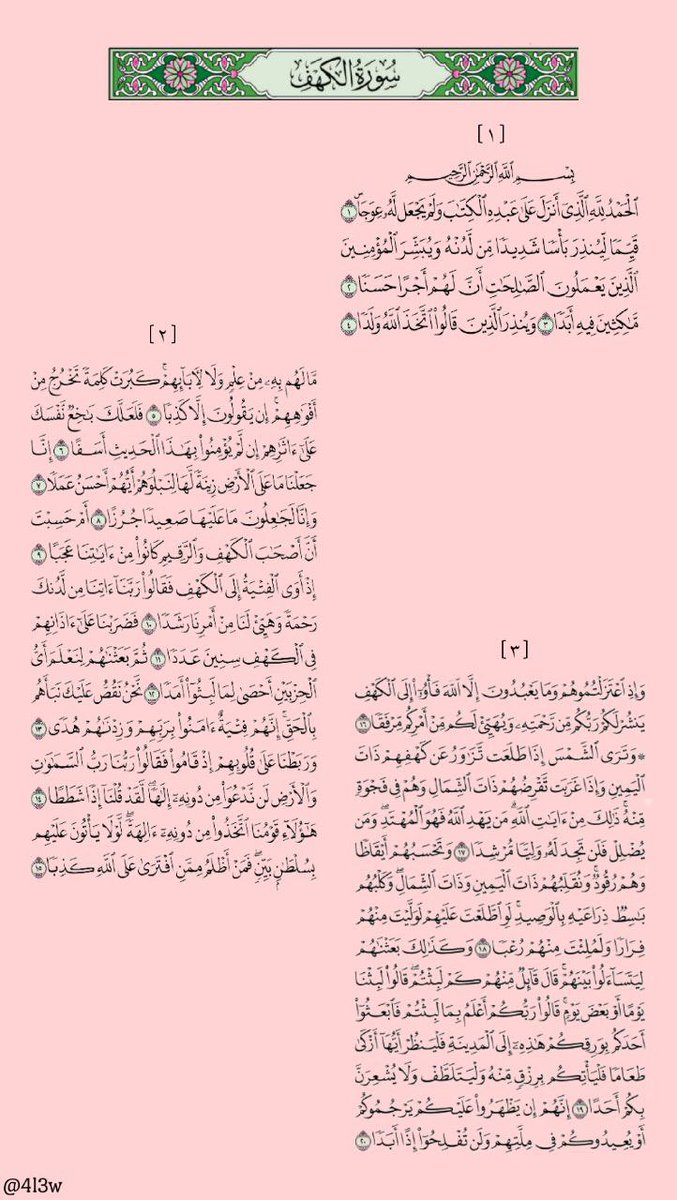 سُورَةُ الكَهْفِ
[١]
بِسْمِ ٱللَّهِ ٱلرَّحْمَٰنِ ٱلرَّحِيمِ
ٱلْحَمْدُ لِلَّهِ ٱلَّذِىٓ أَنزَلَ عَلَىٰ عَبْدِهِ ٱلْكِتَٰبَ وَلَمْ يَجْعَل لَّهُۥ عِوَجَاۜ ١
قَيِّمًا لِّيُنذِرَ بَأْسًا شَدِيدًا مِّن لَّدُنْهُ وَيُبَشِّرَ ٱلْمُؤْمِنِينَ
ٱلَّذِينَ يَعْمَلُونَ ٱلصَّٰلِحَٰتِ أَنَّ لَهُمْ أَجْرًا حَسَنًا ٢
مَّٰكِثِينَ فِيهِ أَبَدًا ٣ وَيُنذِرَ ٱلَّذِينَ قَالُوا۟ ٱتَّخَذَ ٱللَّهُ وَلَدًا ٤
[٢]
مَّا لَهُم بِهِۦ مِنْ عِلْمٍ وَلَا لِءَابَآئِهِمْ ۚ كَبُرَتْ كَلِمَةً تَخْرُجُ مِنْ
أَفْوَٰهِهِمْ ۚ إِن يَقُولُونَ إِلَّا كَذِبًا ٥ فَلَعَلَّكَ بَٰخِعٌ نَّفْسَكَ
عَلَىٰٓ ءَاثَٰرِهِمْ إِن لَّمْ يُؤْمِنُوا۟ بِهَٰذَا ٱلْحَدِيثِ أَسَفًا ٦ إِنَّا
جَعَلْنَا مَا عَلَى ٱلْأَرْضِ زِينَةً لَّهَا لِنَبْلُوَهُمْ أَيُّهُمْ أَحْسَنُ عَمَلًا ٧
وَإِنَّا لَجَٰعِلُونَ مَا عَلَيْهَا صَعِيدًا جُرُزًا ٨ أَمْ حَسِبْتَ
أَنَّ أَصْحَٰبَ ٱلْكَهْفِ وَٱلرَّقِيمِ كَانُوا۟ مِنْ ءَايَٰتِنَا عَجَبًا ٩
إِذْ أَوَى ٱلْفِتْيَةُ إِلَى ٱلْكَهْفِ فَقَالُوا۟ رَبَّنَآ ءَاتِنَا مِن لَّدُنكَ
رَحْمَةً وَهَيِّئْ لَنَا مِنْ أَمْرِنَا رَشَدًا ١٠ فَضَرَبْنَا عَلَىٰٓ ءَاذَانِهِمْ
فِى ٱلْكَهْفِ سِنِينَ عَدَدًا ١١ ثُمَّ بَعَثْنَٰهُمْ لِنَعْلَمَ أَىُّ
ٱلْحِزْبَيْنِ أَحْصَىٰ لِمَا لَبِثُوٓا۟ أَمَدًا ١٢ نَّحْنُ نَقُصُّ عَلَيْكَ نَبَأَهُم
بِٱلْحَقِّ ۚ إِنَّهُمْ فِتْيَةٌ ءَامَنُوا۟ بِرَبِّهِمْ وَزِدْنَٰهُمْ هُدًى ١٣
وَرَبَطْنَا عَلَىٰ قُلُوبِهِمْ إِذْ قَامُوا۟ فَقَالُوا۟ رَبُّنَا رَبُّ ٱلسَّمَٰوَٰتِ
وَٱلْأَرْضِ لَن نَّدْعُوَا۟ مِن دُونِهِۦٓ إِلَٰهًا ۖ لَّقَدْ قُلْنَآ إِذًا شَطَطًا ١٤
هَٰٓؤُلَآءِ قَوْمُنَا ٱتَّخَذُوا۟ مِن دُونِهِۦٓ ءَالِهَةً ۖ لَّوْلَا يَأْتُونَ عَلَيْهِم
بِسُلْطَٰنٍۭ بَيِّنٍ ۖ فَمَنْ أَظْلَمُ مِمَّنِ ٱفْتَرَىٰ عَلَى ٱللَّهِ كَذِبًا ١٥
[٣]
وَإِذِ ٱعْتَزَلْتُمُوهُمْ وَمَا يَعْبُدُونَ إِلَّا ٱللَّهَ فَأْوُۥٓا۟ إِلَى ٱلْكَهْفِ
يَنشُرْ لَكُمْ رَبُّكُم مِّن رَّحْمَتِهِۦ وَيُهَيِّئْ لَكُم مِّنْ أَمْرِكُم مِّرْفَقًا ١٦
۞ وَتَرَى ٱلشَّمْسَ إِذَا طَلَعَت تَّزَٰوَرُ عَن كَهْفِهِمْ ذَاتَ
ٱلْيَمِينِ وَإِذَا غَرَبَت تَّقْرِضُهُمْ ذَاتَ ٱلشِّمَالِ وَهُمْ فِى فَجْوَةٍ
مِّنْهُ ۚ ذَٰلِكَ مِنْ ءَايَٰتِ ٱللَّهِ ۗ مَن يَهْدِ ٱللَّهُ فَهُوَ ٱلْمُهْتَدِ ۖ وَمَن
يُضْلِلْ فَلَن تَجِدَ لَهُۥ وَلِيًّا مُّرْشِدًا ١٧ وَتَحْسَبُهُمْ أَيْقَاظًا
وَهُمْ رُقُودٌ ۚ وَنُقَلِّبُهُمْ ذَاتَ ٱلْيَمِينِ وَذَاتَ ٱلشِّمَالِ ۖ وَكَلْبُهُم
بَٰسِطٌ ذِرَاعَيْهِ بِٱلْوَصِيدِ ۚ لَوِ ٱطَّلَعْتَ عَلَيْهِمْ لَوَلَّيْتَ مِنْهُمْ
فِرَارًا وَلَمُلِئْتَ مِنْهُمْ رُعْبًا ١٨ وَكَذَٰلِكَ بَعَثْنَٰهُمْ
لِيَتَسَآءَلُوا۟ بَيْنَهُمْ ۚ قَالَ قَآئِلٌ مِّنْهُمْ كَمْ لَبِثْتُمْ ۖ قَالُوا۟ لَبِثْنَا
يَوْمًا أَوْ بَعْضَ يَوْمٍ ۚ قَالُوا۟ رَبُّكُمْ أَعْلَمُ بِمَا لَبِثْتُمْ فَٱبْعَثُوٓا۟
أَحَدَكُم بِوَرِقِكُمْ هَٰذِهِۦٓ إِلَى ٱلْمَدِينَةِ فَلْيَنظُرْ أَيُّهَآ أَزْكَىٰ
طَعَامًا فَلْيَأْتِكُم بِرِزْقٍ مِّنْهُ وَلْيَتَلَطَّفْ وَلَا يُشْعِرَنَّ
بِكُمْ أَحَدًا ١٩ إِنَّهُمْ إِن يَظْهَرُوا۟ عَلَيْكُمْ يَرْجُمُوكُمْ
أَوْ يُعِيدُوكُمْ فِى مِلَّتِهِمْ وَلَن تُفْلِحُوٓا۟ إِذًا أَبَدًا ٢٠
@4l3w